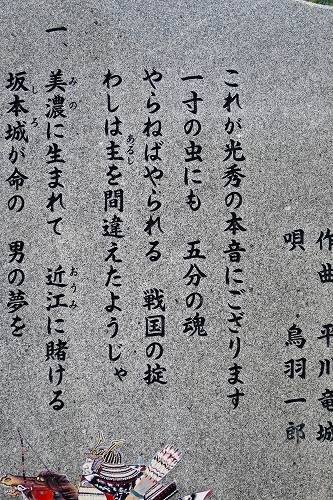 作曲 平川竜城
唄 鳥羽一郎
これが光秀の本音にござります
一寸の虫にも 五分の魂
やらねばやられる 戦国の掟
わしは主を間違えたようじゃ
あるじ
一、
美濃に生まれて 近江に賭ける
みの おうみ
坂本城が命の 男の夢を
しろ